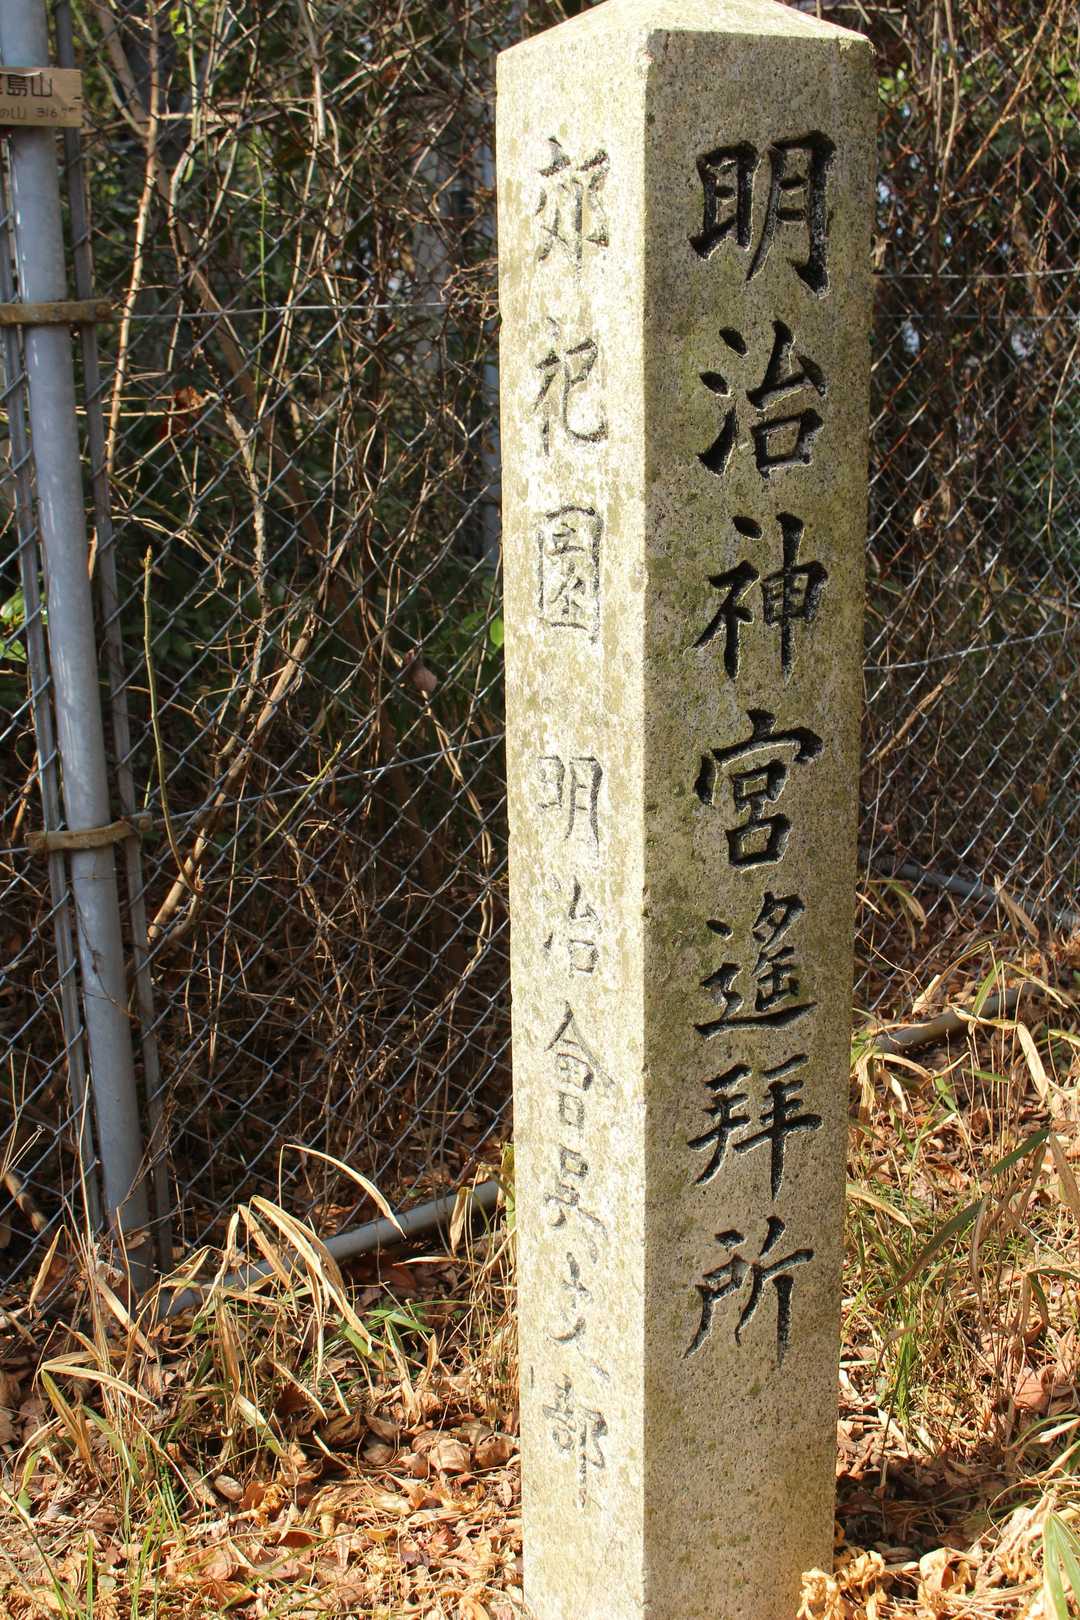 島山
の山 316
明治神宮遙拜所
郊祀園 明治會呉支部